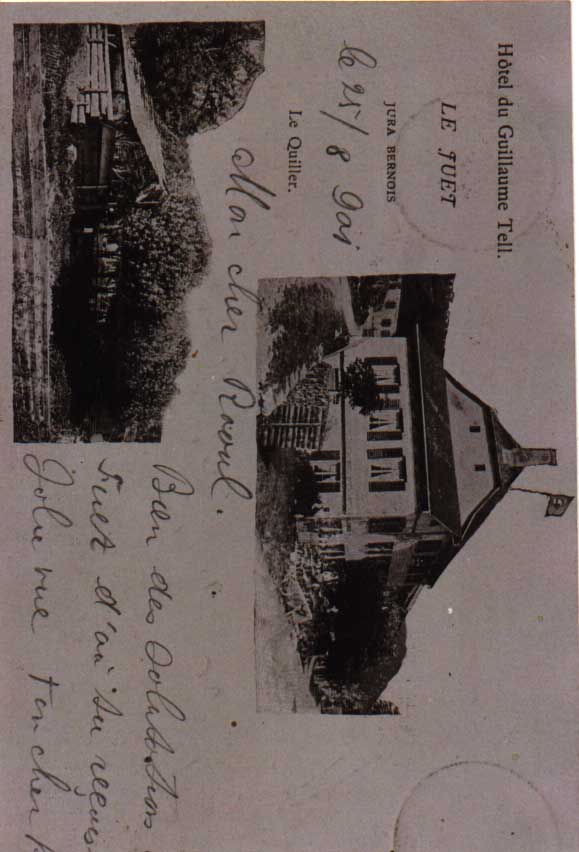 Hôtel du Guillaume Tell.
LE FUET
JURA BERNOIS
Le Quiller.
le 25/8 901
Mon cher Raoul.
Bien des Salutations
Fuet d'où tu reçois
Jolie vue ton cher